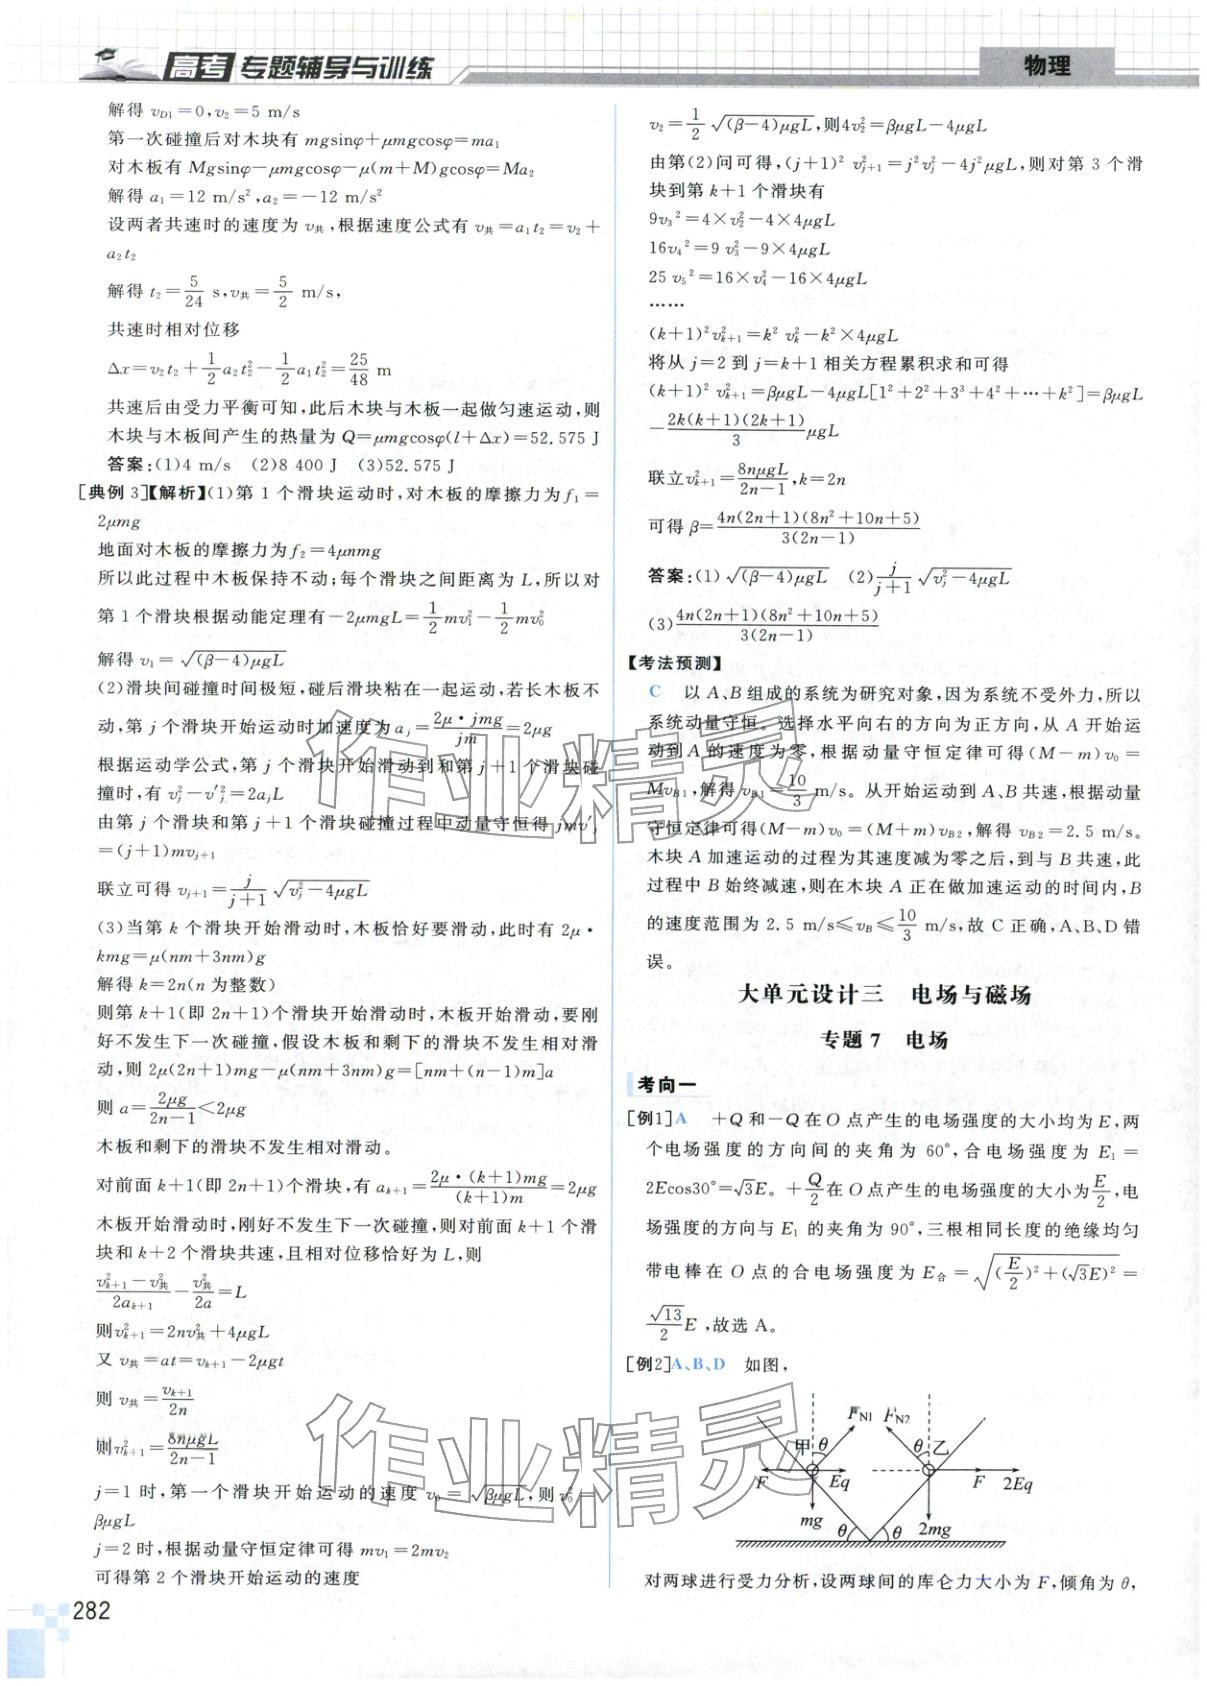 高考 专题辅导与训练
物理
解得 v_D1=0,v₂=5 m/s
第一次碰撞后对木块有 mgsinφ+μmgcosφ=ma₁
对木板有 Mgsinφ-μmgcosφ-μ(m+M)gcosφ=Ma₂
解得 a₁=12 m/s²,a₂=-12 m/s²
设两者共速时的速度为 v共,根据速度公式有 v共=a₁t₂=v₂+
a₂t₂
解得 t₂=5/24 s,v共=5/2 m/s,
共速时相对位移
Δx=v₂t₂+1/2a₂t₂²-1/2a₁t₂²=25/48 m
共速后由受力平衡可知,此后木块与木板一起做匀速运动,则
木块与木板间产生的热量为 Q=μmgcosφ(l+Δx)=52.575 J
答案:(1)4 m/s (2)8 400 J (3)52.575 J
[典例 3]【解析】(1)第 1 个滑块运动时,对木板的摩擦力为 f₁=
2μmg
地面对木板的摩擦力为 f₂=4μnmg
所以此过程中木板保持不动;每个滑块之间距离为 L,所以对
第 1 个滑块根据动能定理有-2μmgL=1/2mv₁²-1/2mv₀²
解得 v₁=√((β-4)μgL)
(2)滑块间碰撞时间极短,碰后滑块粘在一起运动,若长木板不
动,第 j 个滑块开始运动时加速度为 a_j=2μ·jmg/jm=2μg
根据运动学公式,第 j 个滑块开始滑动到和第 j+1 个滑块碰
撞时,有 v_j²-v'_j²=2a_jL
由第 j 个滑块和第 j+1 个滑块碰撞过程中动量守恒得 jmv'_j
=(j+1)mv_{j+1}
联立可得 v_{j+1}=j/(j+1)√(v_j²-4μgL)
(3)当第 k 个滑块开始滑动时,木板恰好要滑动,此时有 2μ·
kmg=μ(nm+3nm)g
解得 k=2n(n 为整数)
则第 k+1(即 2n+1)个滑块开始滑动时,木板开始滑动,要刚
好不发生下一次碰撞,假设木板和剩下的滑块不发生相对滑
动,则 2μ(2n+1)mg-μ(nm+3nm)g=[nm+(n-1)m]a
则 a=2μg/(2n-1)<2μg
木板和剩下的滑块不发生相对滑动。
对前面 k+1(即 2n+1)个滑块,有 a_{k+1}=2μ·(k+1)mg/(k+1)m=2μg
木板开始滑动时,刚好不发生下一次碰撞,则对前面 k+1 个滑
块和 k+2 个滑块共速,且相对位移恰好为 L,则
(v_{k+1}²-v共²)/2a_{k+1}-v共²/2a=L
则v_{k+1}²=2nv共²+4μgL
又 v共=at=v_{k+1}-2μgt
则 v共=v_{k+1}/2n
则v_{k+1}²=8nμgL/(2n-1)
j=1 时,第一个滑块开始运动的速度 v₀=√(βμgL),则 v₀²=
βμgL
j=2 时,根据动量守恒定律可得 mv₁=2mv₂
可得第 2 个滑块开始运动的速度
282
v₂=1/2√((β-4)μgL),则4v₂²=βμgL-4μgL
由第(2)问可得,(j+1)² v_{j+1}²=j²v_j²-4j²μgL,则对第 3 个滑
块到第 k+1 个滑块有
9v₃²=4×v₂²-4×4μgL
16v₄²=9 v₃²-9×4μgL
25 v₅²=16×v₄²-16×4μgL
……
(k+1)²v_{k+1}²=k² v_k²-k²×4μgL
将从 j=2 到 j=k+1 相关方程累积求和可得
(k+1)² v_{k+1}²=βμgL-4μgL[1²+2²+3³+4²+…+k²]=βμgL
-2k(k+1)(2k+1)/3 μgL
联立v_{k+1}²=8nμgL/(2n-1),k=2n
可得 β=4n(2n+1)(8n²+10n+5)/3(2n-1)
答案:(1)√((β-4)μgL) (2)j/(j+1)√(v_j²-4μgL)
(3)4n(2n+1)(8n²+10n+5)/3(2n-1)
【考法预测】
C 以 A、B 组成的系统为研究对象,因为系统不受外力,所以
系统动量守恒。选择水平向右的方向为正方向,从 A 开始运
动到 A 的速度为零,根据动量守恒定律可得(M-m)v₀=
Mv_B1,解得 v_B1=10/3 m/s。从开始运动到 A、B 共速,根据动量
守恒定律可得(M-m)v₀=(M+m)v_B2,解得 v_B2=2.5 m/s。
木块 A 加速运动的过程为其速度减为零之后,到与 B 共速,此
过程中 B 始终减速,则在木块 A 正在做加速运动的时间内,B
的速度范围为 2.5 m/s≤v_B≤10/3 m/s,故 C 正确,A、B、D 错
误。
大单元设计三 电场与磁场
专题 7 电场
考向一
[例1]A +Q 和-Q 在 O 点产生的电场强度的大小均为 E,两
个电场强度的方向间的夹角为 60°,合电场强度为 E₁=
2Ecos30°=√3E。+Q/2在 O 点产生的电场强度的大小为E/2,电
场强度的方向与 E₁ 的夹角为 90°,三根相同长度的绝缘均匀
带电棒在 O 点的合电场强度为 E合=√((E/2)²+(√3E)²)=
√13/2 E,故选 A。
[例2]A、B、D 如图,
F_N1 F_N2
甲 θ θ 乙
F Eq F 2Eq
mg θ θ 2mg
对两球进行受力分析,设两球间的库仑力大小为 F,倾角为 θ,
作业精灵
作业精灵